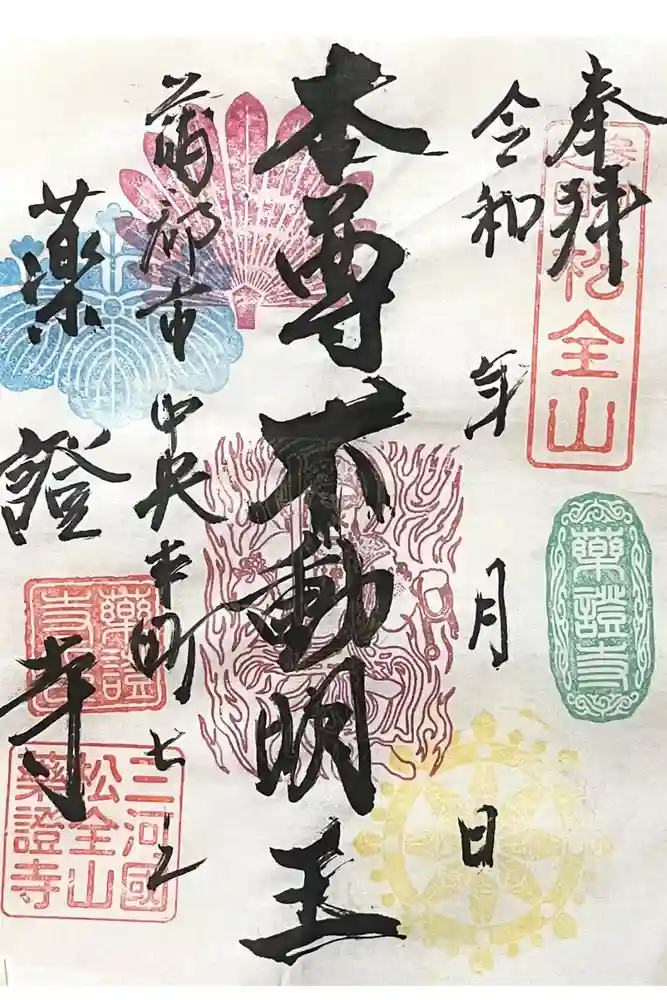 奉拝
松全山
藥證寺
令和 年 月 日
本尊 不動明王
蒲郡市 中央本町七
薬證寺
藥證
三河國
松全山
藥證寺